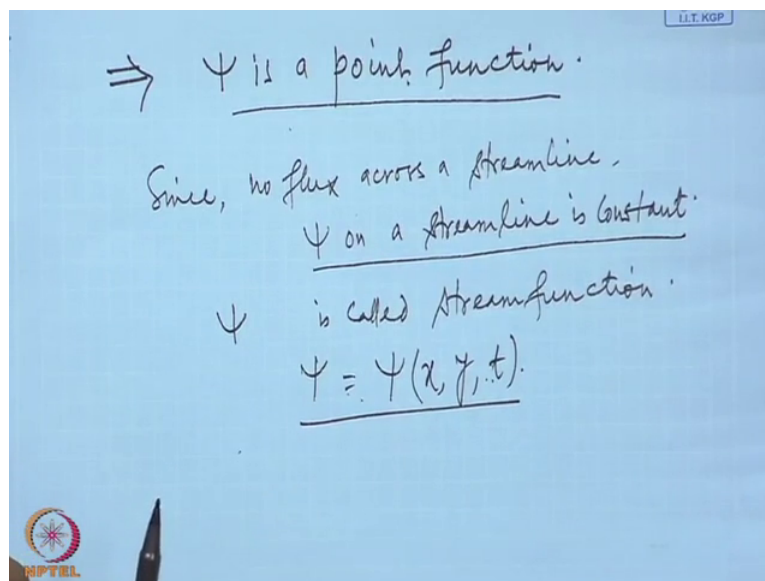 I.I.T. KGP
⇒ Ψ is a point function.
Since, no flux across a streamline.
Ψ on a streamline is constant.
Ψ is called streamfunction.
Ψ = Ψ(x, y, t).
NPTEL